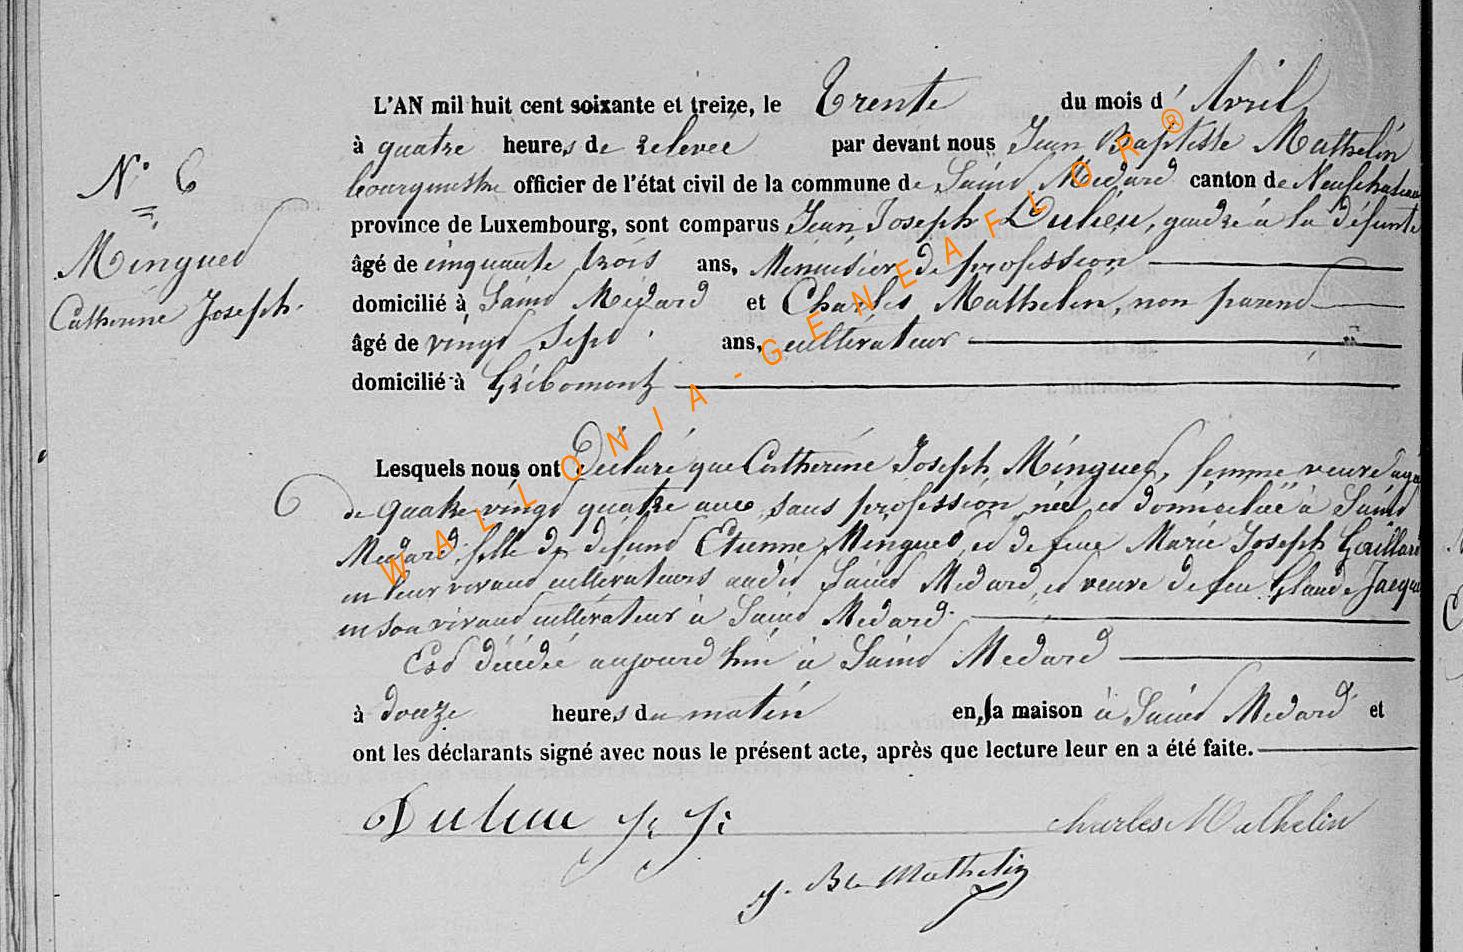 N° 6
Mingued
Catherine Joseph.
L'AN mil huit cent soixante et treize, le Trente du mois d' Avril
à quatre heures de relevée par devant nous Jean Baptiste Mathelin
bourgmestre officier de l'état civil de la commune de Saind Medard canton de Neufchateau
province de Luxembourg, sont comparus Jean Joseph Dulieu, gendre à la défunte
âgé de cinquante trois ans, Menuisier de profession
domicilié à Saind Médard et Charles Mathelin, non parend
âgé de vingd sepd ans, cultivateur
domicilié à Gribomont
Lesquels nous ont Déclaré que Catherine Joseph Mingued, femme veuve agée
de quatre vingd quatre ans, sans profession, née et domiciliée à Saind
Medard fille de défund Etienne Mingued, et de feue Marie Joseph Gaillard
en leur vivand cultivateurs audit Saind Medard, et veuve de feu Glaude Jacque
en son vivand cultivateur à Saind Medard.
Esd décédée aujourd'hui à Saind Medard
à douze heures du matin en sa maison à Saind Medard et
ont les déclarants signé avec nous le présent acte, après que lecture leur en a été faite.
Dulieu J. J. Charles Mathelin
J. Bte Mathelin
WALLONIA-GENEAFLOR®